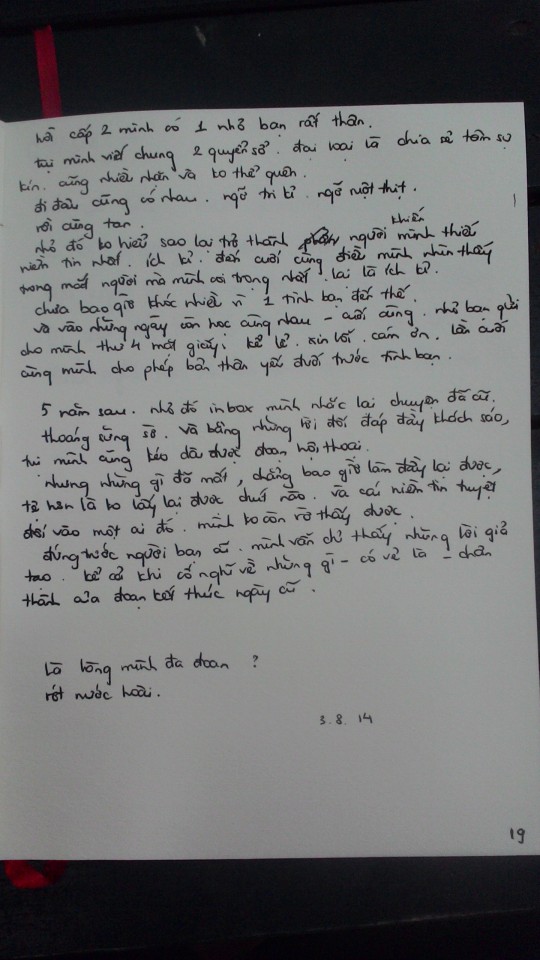 hồi cấp 2 mình có 1 nhỏ bạn rất thân.
tụi mình viết chung 2 quyển sổ. đại loại là chia sẻ tâm sự
kín. cũng nhiều nhắn và ko thể quên.
đi đâu cũng có nhau. ngỡ tri kỉ. ngỡ ruột thịt.
rồi cũng tan.
khiến
nhỏ đó ko hiểu sao lại trở thành người mình thiếu
niềm tin nhất. ích kỉ. đến cuối cùng điều mình nhìn thấy
trong mắt người mà mình coi trọng nhất. lại là ích kỉ.
chưa bao giờ khóc nhiều vì 1 tình bạn đến thế.
và vào những ngày còn học cùng nhau - cuối cùng. nhỏ bạn gửi
cho mình thư 4 mặt giấy: kể lể. xin lỗi. cám ơn. lần cuối
cùng mình cho phép bản thân yếu đuối trước tình bạn.
5 năm sau. nhỏ đó inbox mình nhắc lại chuyện đã cũ.
thoáng sững sờ. và bằng những lời đối đáp đầy khách sáo,
tụi mình cũng kéo dài được đoạn hội thoại.
nhưng những gì đã mất, chẳng bao giờ làm đầy lại được,
tệ hơn là ko lấy lại được chút nào. và cái niềm tin tuyệt
đối vào một ai đó. mình ko còn rờ thấy được.
đứng trước người bạn cũ. mình vẫn chỉ thấy những lời giả
tạo. kể cả khi cố nghĩ về những gì - có vẻ là - chân
thành của đoạn kết thúc ngày cũ.
Là lòng mình đa đoan ?
rót nước hoài.
3.8.14
19